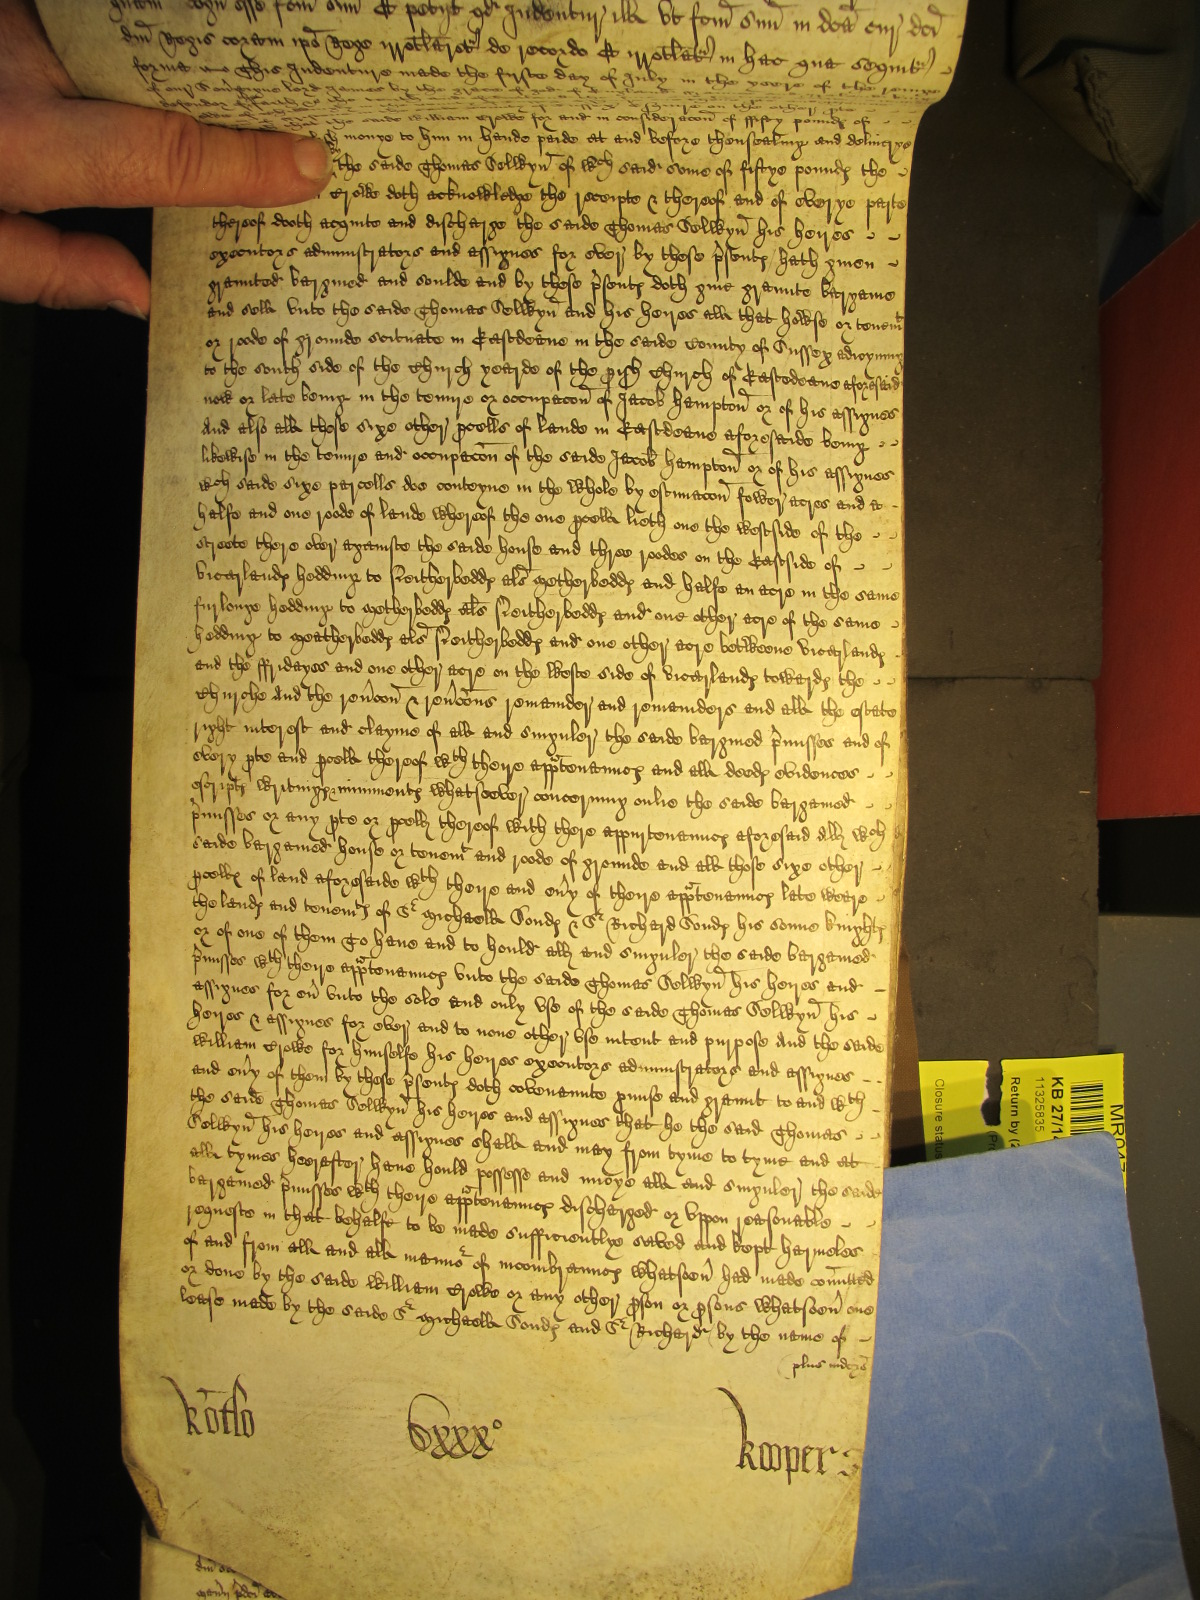 dm̄ Regis coram ipo Rege irrotlarer de recordo Et irrotlar in hac que sequitr
forma This Indenture made the firste day of July in the yeere of the
william Crowe for and in consideracon of fifty pounds of
monye to him in hande paide at and before thensealing and deliverye
the saide Thomas Selwyn of wch said some of fiftye pounds the
Crowe doth acknowledge the receipte & thereof and of everye parte
thereof dooth acquite and discharge the saide Thomas Selwyn his heires
executors administrators and assignes for ever by these psents hath given
graunted bargined and soulde and by these psents doth give graunte bargaine
and sell unto the saide Thomas Selwyn and his heires all that howse or tenemt
or roode of grounde scituate in Eastdeane in the saide County of Sussex adioyning
to the south side of the Church yearde of the pish Church of Eastdeane aforesaid
now or late being in the tenure or occupacon of Jacob Hampton or of his assignes
And also all those sixe other pcells of lande in Eastdeane aforesaide being
likewise in the tenure and occupacon of the saide Jacob Hampton or of his assignes
wch saide sixe parcells doe conteyne in the whole by estimacon fower acres and a
halfe and one roode of lande whereof the one pcell lieth one the westside of the
streete there over againste the saide house and three roodes on the Eastside of
Vicarlands hedding to Neitherbedds als Metherbedds and halfe an acre in the same
furlonge hedding to Metherbedds als Neitherbedds and one other acre of the same
hedding to Meatherbedds als Neitherbedds and one other acre betweene Vicarlands
and the ffridayes and one other acre on the weste side of Vicarlands towards the
Churche And the revcon & revcons remainder and remainders and all the estate
right interest and clayme of all and singuler the saide bargined pmisses and of
every pte and pcell thereof wth theire apptenauncs and all deeds evidences
escripts writings miniments whatsoever concerning onlie the saide bargained
pmisses or any pte or pcell thereof with there appurtenauncs aforesaid All wch
saide bargained house or tenemt and roode of grounde and all those sixe other
pcells of land aforesaide wth theire and evy of theire apptenauncs late weare
the lands and tenemts of Sr Michaell Sonds & Sr Richard Sonds his sonne knights
or of one of them To have and to hould all and singuler the saide bargained
pmisses wth theire apptenauncs unto the saide Thomas Selwyn his heires and
assignes for ev unto the sole and only use of the saide Thomas Selwyn his
heires & assignes for ever and to none other use intent and purpose And the saide
william Crowe for himselfe his heires executors administrators and assignes
and evy of them by these psents doth covenante pmise and graunt to and wth
the saide Thomas Selwyn his heires and assignes that he the said Thomas
Selwyn his heires and assignes shall and may from tyme to tyme and at
all tymes heerafter have hould possesse and inioye all and singuler the saide
bargained pmisses wth theire apptenauncs discharged or uppon reasonable
requeste in that behalfe to be made sufficientlye saved and kept harmeles
of and from all and all manner of incombrauncs whatsoev had made comitted
or done by the saide william Crowe or any other pson or psons whatsoev one
lease made by the saide Sr Michaell Sonds and Sr Richard by the name of
plus indors
xxxo
Cooper
KB 27/1
11325835
Return by (
Closure status